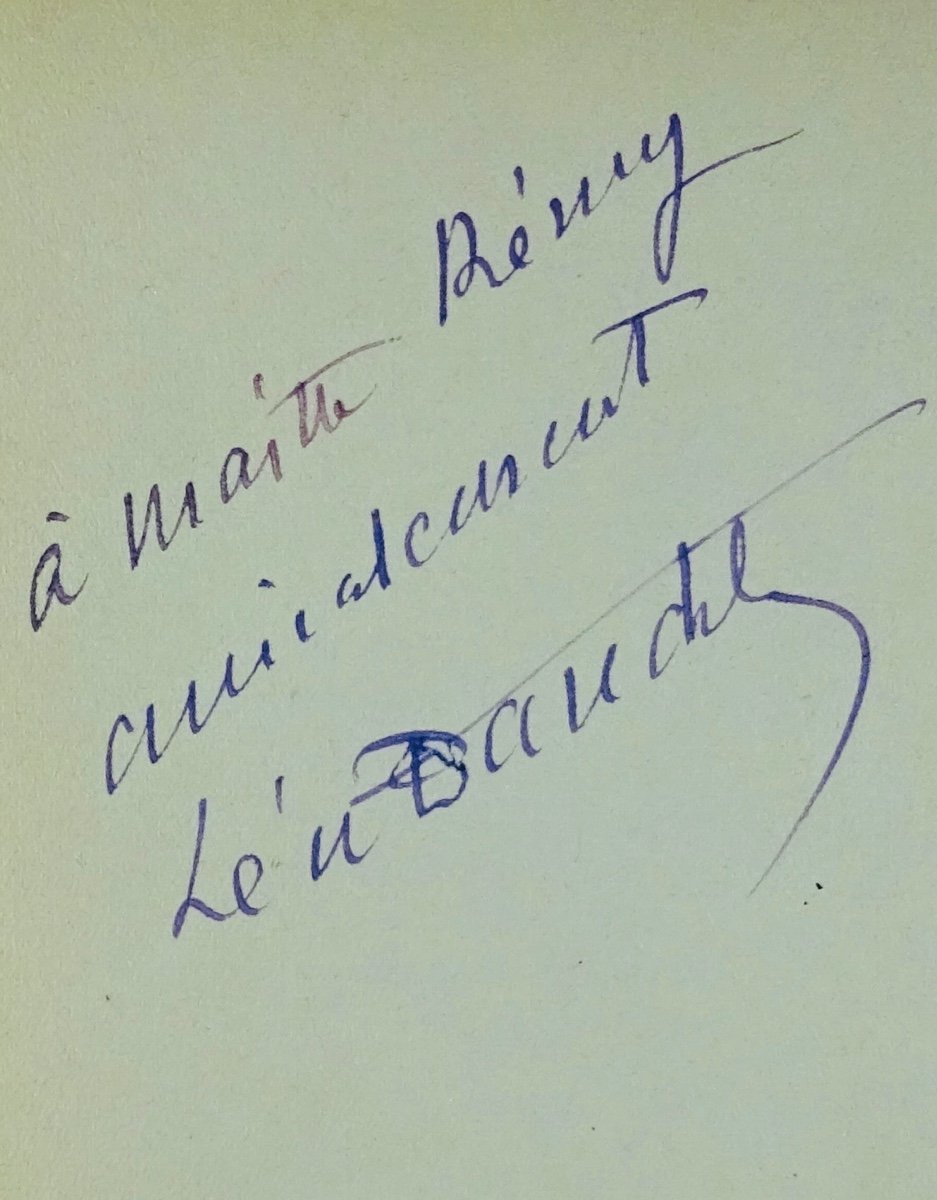 à Maître Rémy
amicalement
Léon Daudet